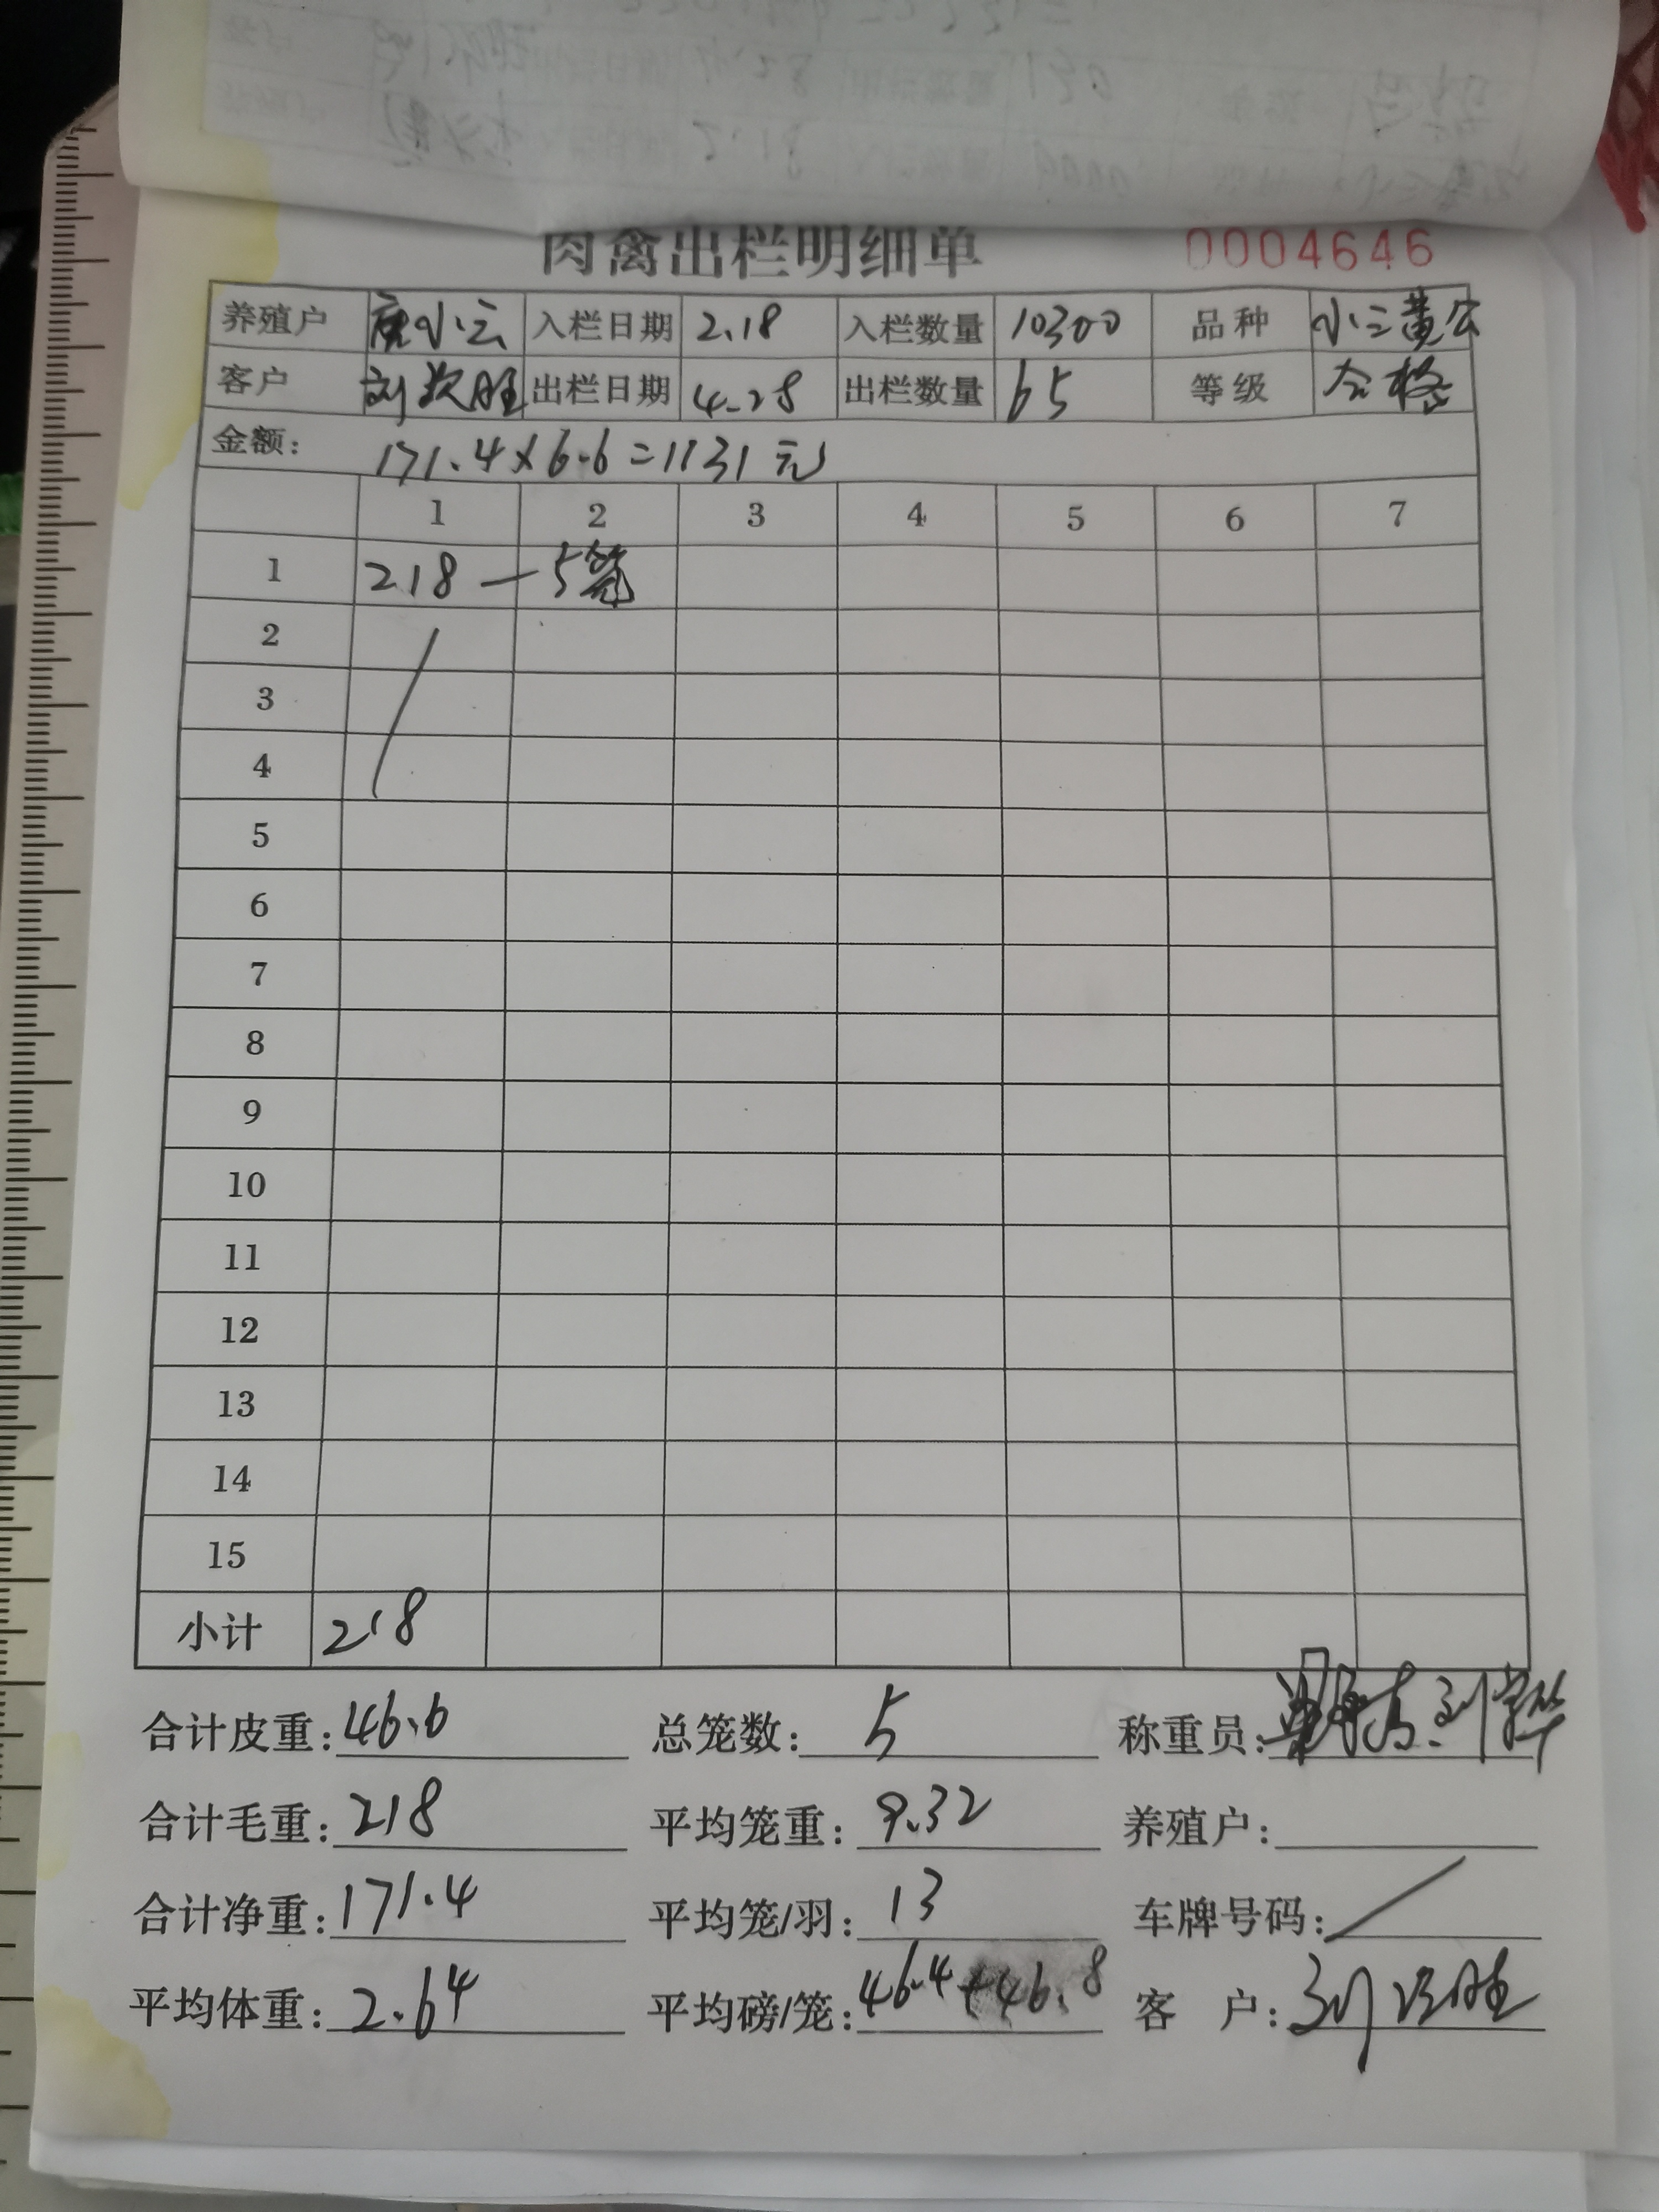 肉禽出栏明细单 0004646
养殖户 唐小云 入栏日期 2.18 入栏数量 10300 品种 小三黄公
客户 刘次旺 出栏日期 4.28 出栏数量 65 等级 合格
金额: 171.4×6.6=1131元
1 2 3 4 5 6 7
1 218 — 5笼
2
3
4
5
6
7
8
9
10
11
12
13
14
15
小计 218
合计皮重: 46.6 总笼数: 5 称重员:
合计毛重: 218 平均笼重: 9.32 养殖户:
合计净重: 171.4 平均笼/羽: 13 车牌号码: /
平均体重: 2.64 平均磅/笼: 46.4+46.8 客 户: 刘次旺